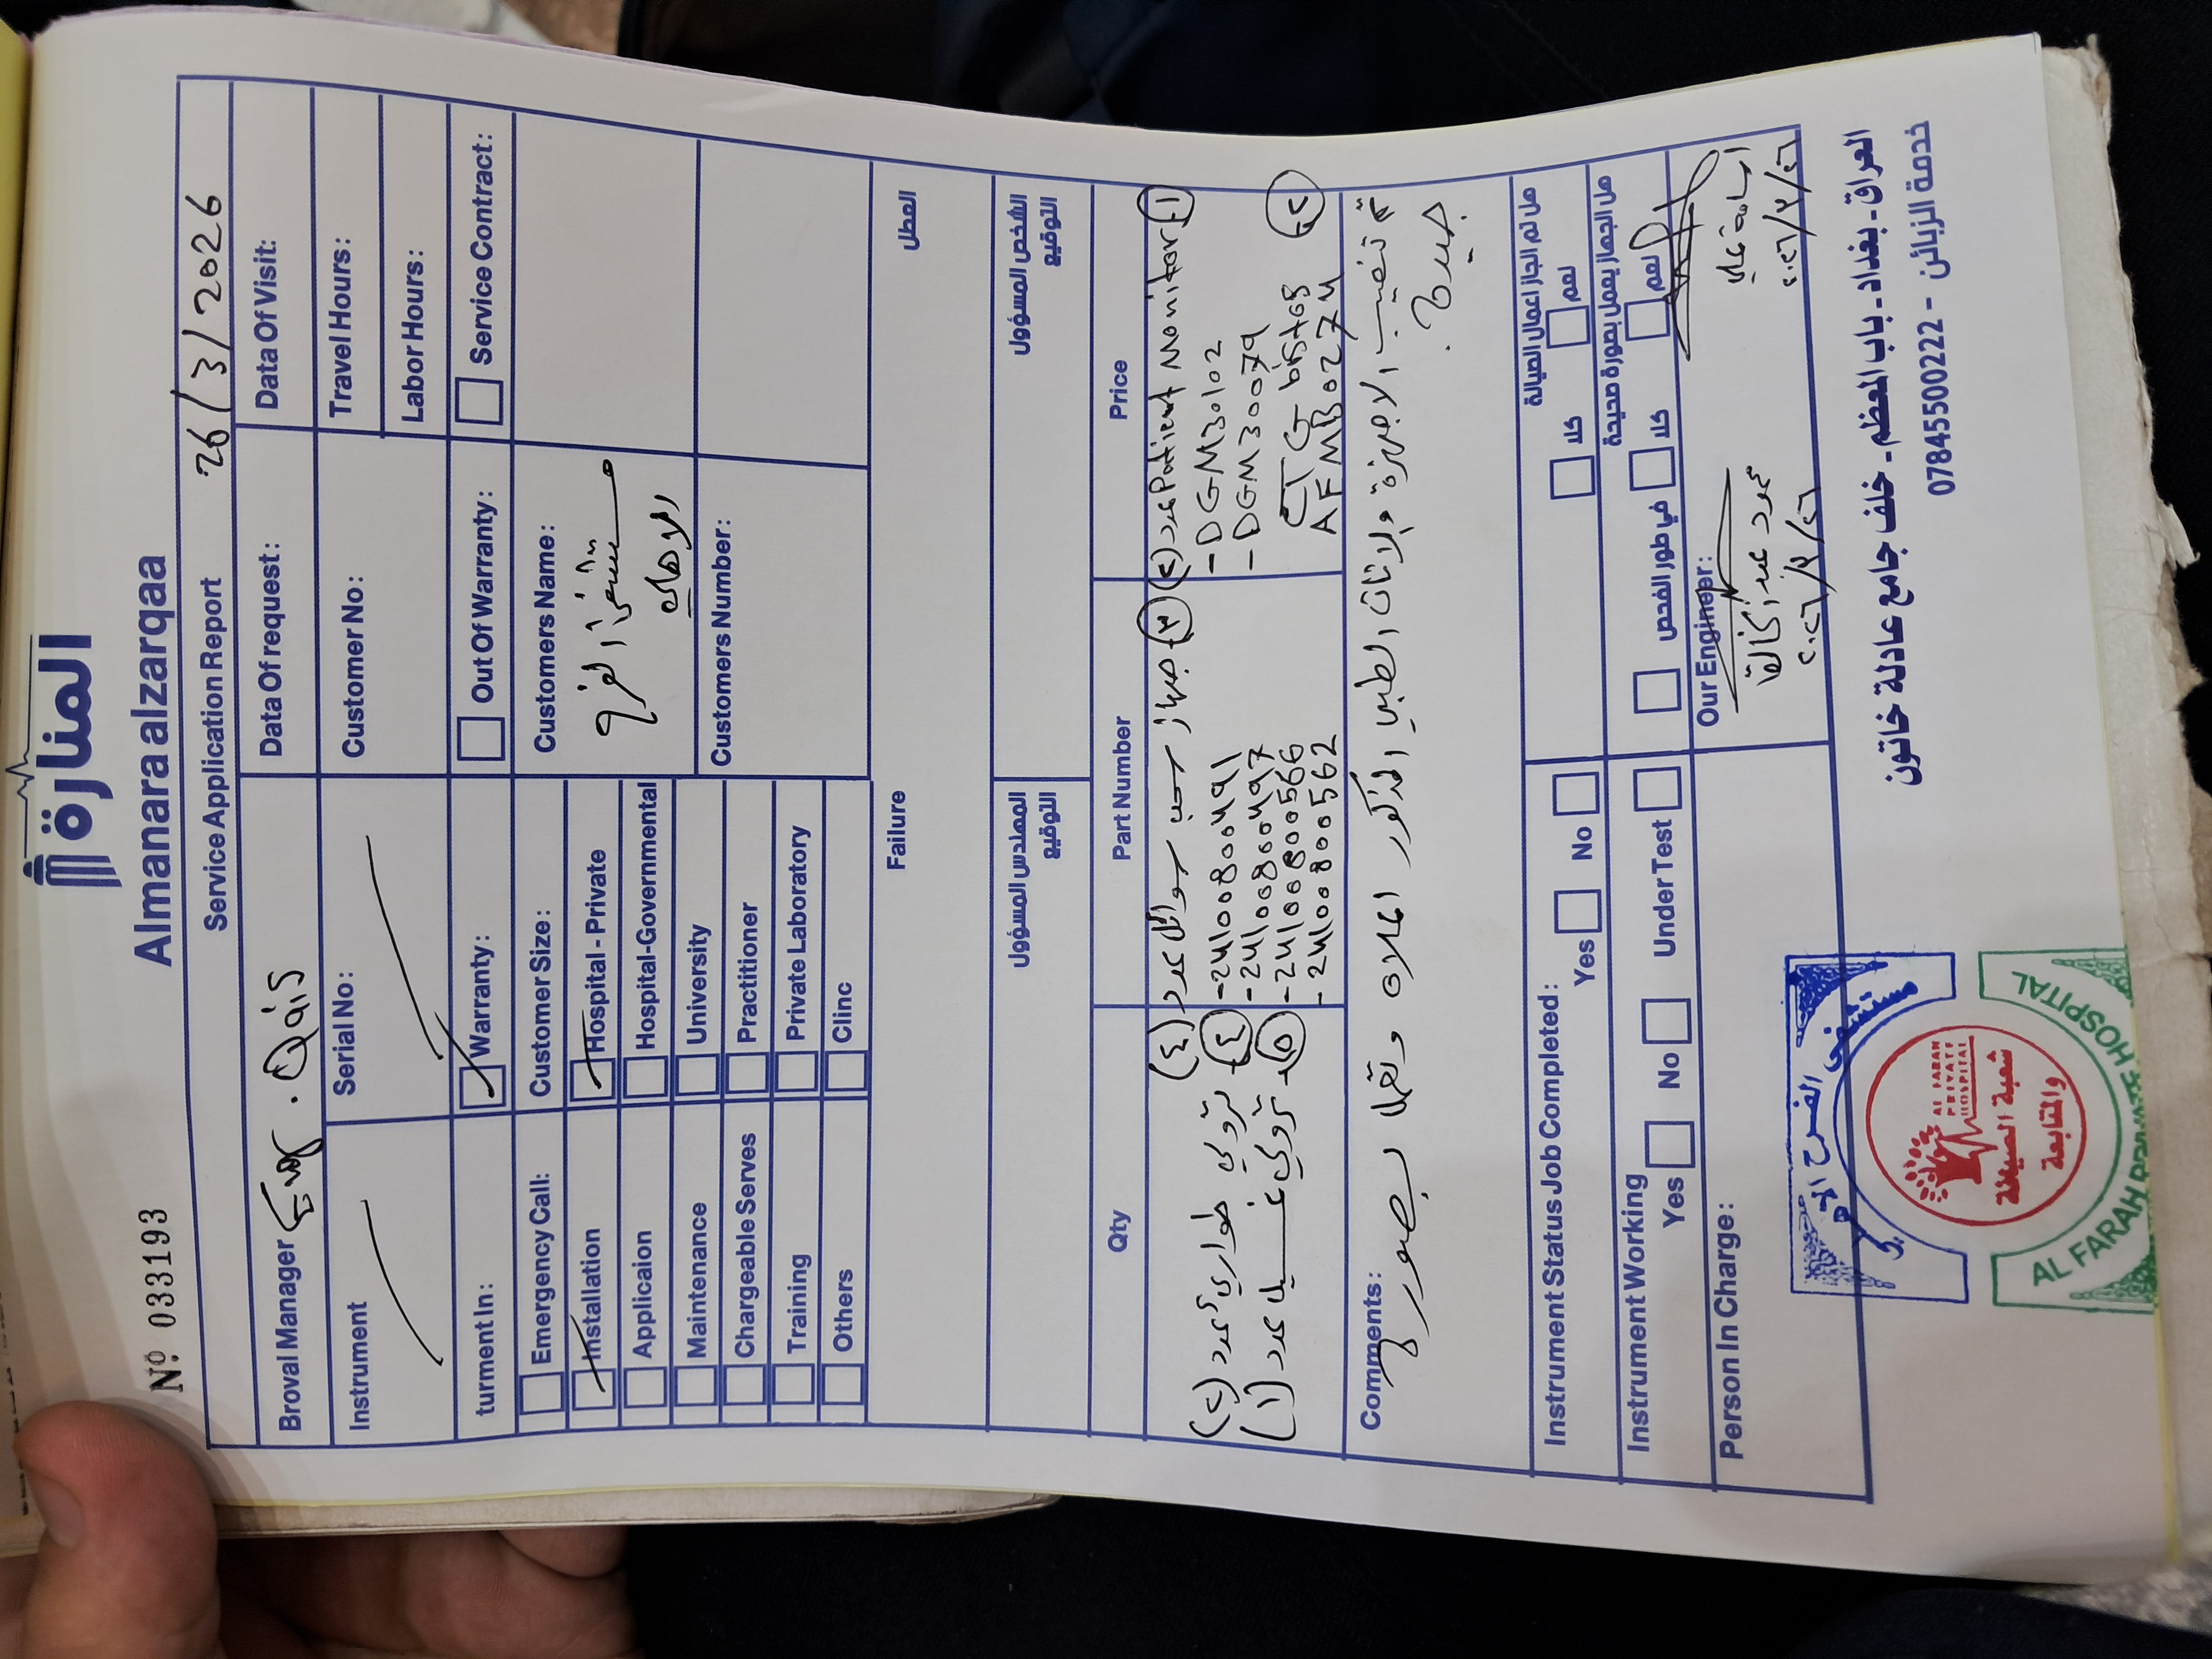 المنارة
Almanara alzarqaa
Nº 033193
Service Application Report 26/3/2026
Broval Manager Eng. Qais
Data Of request:
Data Of Visit:
Instrument
Serial No:
Customer No:
Travel Hours:
Labor Hours:
turment In:
Warranty:
Out Of Warranty:
Service Contract:
Emergency Call:
Installation
Applicaion
Maintenance
Chargeable Serves
Training
Others
Customer Size:
Hospital - Private
Hospital-Governmental
University
Practitioner
Private Laboratory
Clinc
Customers Name:
مستشفى الفرح
الاهلي
Customers Number:
Failure
العطل
المهندس المسؤول
التوقيع
الشخص المسؤول
التوقيع
Qty
Part Number
Price
1- Patient Monitor عدد (2)
- DGM30102
- DGM30079
2- CTG
AFMB0274
3- جهاز سحب سوائل عدد (4)
- 24100800491
- 24100800497
- 24100800566
- 24100800562
4- ترولي طوارئ عدد (2)
5- ترولي غسيل عدد (1)
Comments:
تم تنصيب الاجهزة والاثاث الطبي المذكور اعلاه وتعمل بصورة
جيدة.
Instrument Status Job Completed:
Yes
No
هل تم انجاز اعمال الصيانة
نعم
كلا
Instrument Working
Yes
No
Under Test
هل الجهاز يعمل بصورة صحيحة
نعم
كلا
في طور الفحص
Person In Charge:
Our Enginer:
عبد الخالق
٢٠٢٦/٣/٢٦
اسامة علي
٢٠٢٦/٣/٢٦
مستشفى الفرح الاهلي
AL FARAH PRIVATE HOSPITAL
شعبة الصيانة
والمتابعة
AL FARAH PRIVATE HOSPITAL
العراق - بغداد - باب المعظم - خلف جامع عادلة خاتون
خدمة الزبائن - 07845500222